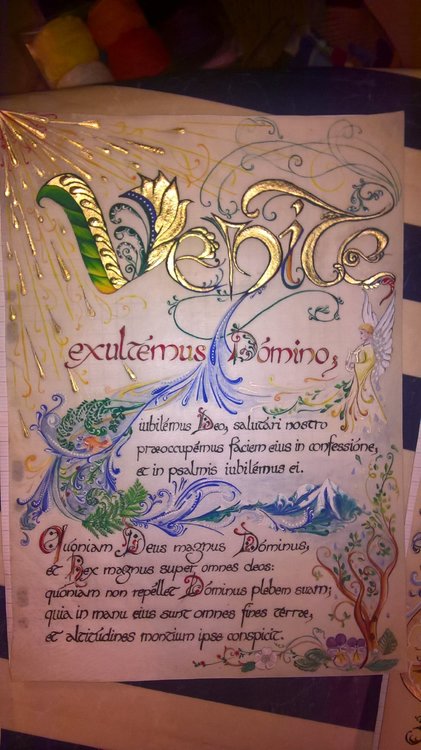 Venite
exultémus Dómino,
iubilémus Deo, salutári nostro
præoccupémus fáciem eius in confessióne,
et in psalmis iubilémus ei.
Quoniam Deus magnus Dóminus,
et Rex magnus super omnes deos:
quoniam non repéllet Dóminus plebem suam;
quia in manu eius sunt omnes fines terræ,
et altitúdines montium ipse conspicit.